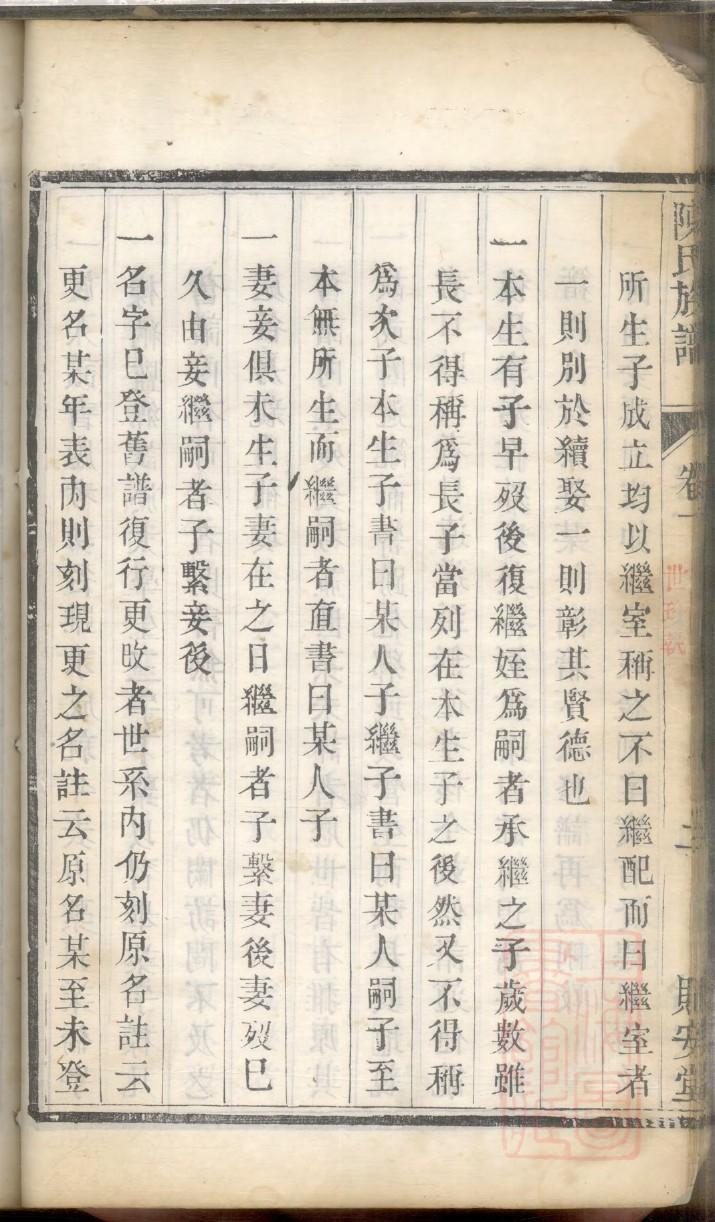 陳氏族譜
卷一
二
貽安堂
所生子成立均以繼室稱之不曰繼配而曰繼室者
一則別於續娶一則彰其賢德也
一本生有子早歿後復繼姪為嗣者承繼之子歲數雖
長不得稱為長子當列在本生子之後然又不得稱
為次子本生子書曰某人子繼子書曰某人嗣子至
本無所生而繼嗣者直書曰某人子
一妻妾俱未生子妻在之日繼嗣者子繫妻後妻歿已
久由妾繼嗣者子繫妾後
一名字已登舊譜復行更改者世系內仍刻原名註云
更名某年表內則刻現更之名註云原名某至未登